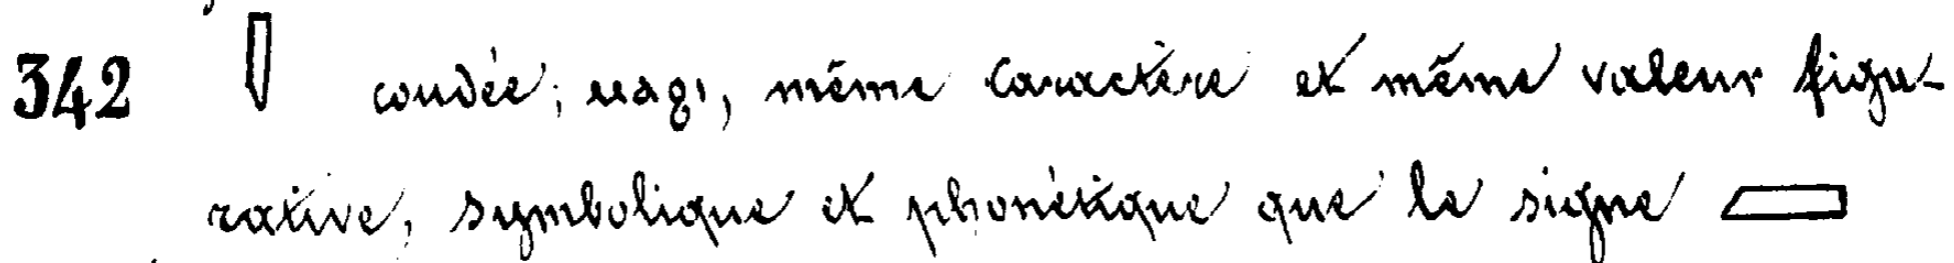 342 coudée; ⲙⲁϩⲓ, même caractère et même valeur figu-
rative, symbolique et phonétique que le signe 𓐙